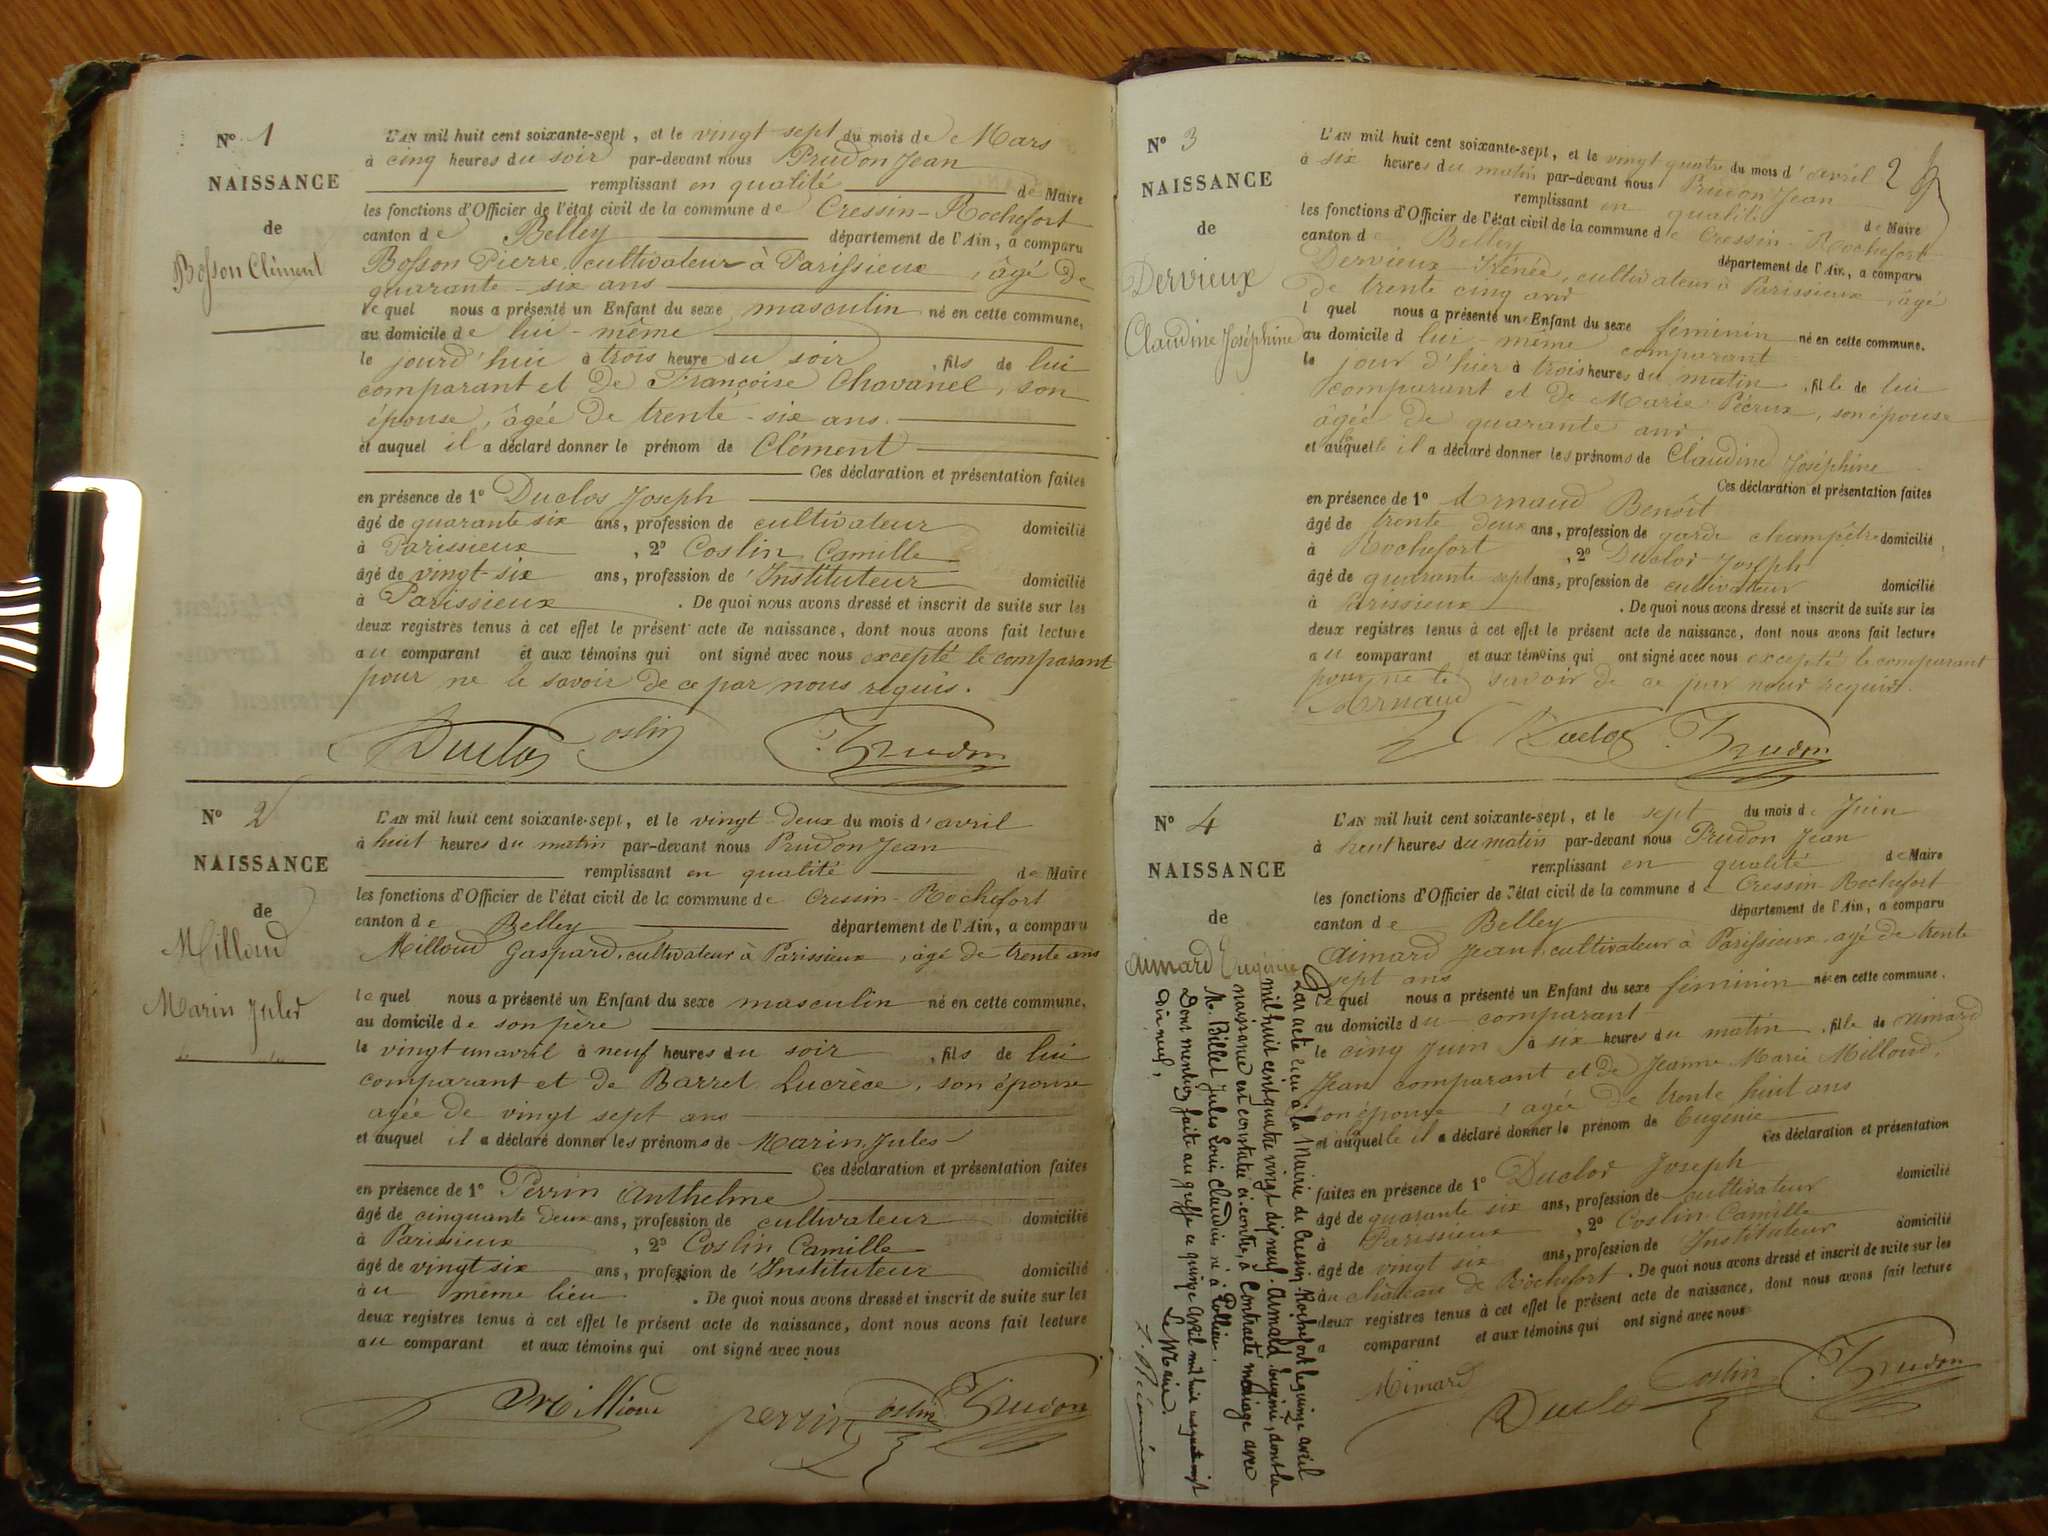 N° 1
NAISSANCE
de
Bosson Clément
L'AN mil huit cent soixante-sept, et le vingt sept du mois de Mars
à cinq heures du soir par-devant nous Prudon Jean
remplissant en qualité de Maire
les fonctions d'Officier de l'état civil de la commune de Cressin-Rochefort
canton de Belley département de l'Ain, a comparu
Bosson Pierre, cultivateur à Parissieux, âgé de
quarante-six ans
lequel nous a présenté un Enfant du sexe masculin né en cette commune,
au domicile de lui-même
le jourd'hui à trois heure du soir, fils de lui
comparant et de Françoise Chavanel, son
épouse, âgée de trente-six ans.
et auquel il a déclaré donner le prénom de Clément
Ces déclaration et présentation faites
en présence de 1° Duclos Joseph
âgé de quarante six ans, profession de cultivateur domicilié
à Parissieux, 2° Coslin Camille
âgé de vingt-six ans, profession d'Instituteur domicilié
à Parissieux. De quoi nous avons dressé et inscrit de suite sur les
deux registres tenus à cet effet le présent acte de naissance, dont nous avons fait lecture
au comparant et aux témoins qui ont signé avec nous excepté le comparant
pour ne le savoir de ce par nous requis.
Duclos Coslin J. Prudon
N° 2
NAISSANCE
de
Milloud
Marin Jules
L'AN mil huit cent soixante-sept, et le vingt-deux du mois d'avril
à huit heures du matin par-devant nous Prudon Jean
remplissant en qualité de Maire
les fonctions d'Officier de l'état civil de la commune de Cressin-Rochefort
canton de Belley département de l'Ain, a comparu
Milloud Gaspard, cultivateur à Parissieux, âgé de trente ans
lequel nous a présenté un Enfant du sexe masculin né en cette commune,
au domicile de son père
le vingt un avril à neuf heures du soir, fils de lui
comparant et de Barret Lucrèce, son épouse
agée de vingt sept ans
et auquel il a déclaré donner les prénoms de Marin Jules
Ces déclaration et présentation faites
en présence de 1° Perrin Anthelme
âgé de cinquante deux ans, profession de cultivateur domicilié
à Parissieux, 2° Coslin Camille
âgé de vingt six ans, profession d'Instituteur domicilié
au même lieu. De quoi nous avons dressé et inscrit de suite sur les
deux registres tenus à cet effet le présent acte de naissance, dont nous avons fait lecture
au comparant et aux témoins qui ont signé avec nous
Millioud perrin Coslin J. Prudon
2
N° 3
NAISSANCE
de
Dervieux
Claudine Joséphine
L'AN mil huit cent soixante-sept, et le vingt quatre du mois d'avril
à six heures du matin par-devant nous Prudon Jean
remplissant en qualité de Maire
les fonctions d'Officier de l'état civil de la commune de Cressin-Rochefort
canton de Belley département de l'Ain, a comparu
Dervieux Irénée, cultivateur à Parissieux, âgé
de trente cinq ans
lequel nous a présenté un Enfant du sexe féminin né en cette commune.
au domicile d lui-même comparant
le jour d'hier à trois heures du matin, fille de lui
comparant et de Marie Pécrux, son épouse
âgée de quarante ans
et auquelle il a déclaré donner les prénoms de Claudine Joséphine
Ces déclaration et présentation faites
en présence de 1° Arnaud Benoît
âgé de trente deux ans, profession de garde champêtre domicilié
à Rochefort, 2° Duclos Joseph
âgé de quarante sept ans, profession de cultivateur domicilié
à Parissieux. De quoi nous avons dressé et inscrit de suite sur les
deux registres tenus à cet effet le présent acte de naissance, dont nous avons fait lecture
au comparant et aux témoins qui ont signé avec nous excepté le comparant
pour ne le savoir de ce par nous requis.
Arnaud Duclos J. Prudon
N° 4
NAISSANCE
de
Aimard Eugénie
L'AN mil huit cent soixante-sept, et le sept du mois de Juin
à huit heures du matin par-devant nous Prudon Jean
remplissant en qualité de Maire
les fonctions d'Officier de l'état civil de la commune de Cressin-Rochefort
canton de Belley département de l'Ain, a comparu
Aimard Jean, cultivateur à Parissieux, agé de trente
sept ans
lequel nous a présenté un Enfant du sexe féminin née en cette commune.
au domicile du comparant
le cinq Juin à six heures du matin, fille de Aimard
Jean comparant et de Jeanne Marie Milloud,
son épouse, agée de trente huit ans
et auquelle il a déclaré donner le prénom de Eugénie
Ces déclaration et présentation
faites en présence de 1° Duclos Joseph
âgé de quarante six ans, profession de cultivateur domicilié
à Parissieux, 2° Coslin Camille
âgé de vingt six ans, profession de Instituteur domicilié
au château de Rochefort. De quoi nous avons dressé et inscrit de suite sur les
deux registres tenus à cet effet le présent acte de naissance, dont nous avons fait lecture
a comparant et aux témoins qui ont signé avec nous
Aimard Duclos Coslin J. Prudon
Par acte reçu à la Mairie de Cressin-Rochefort le quinze avril
mil huit cent quatre vingt dix neuf. Aimard Eugénie, dont la
naissance est constatée ci-contre, a Contracté mariage avec
M. Billet Jules Louis Claudius né à Pollieu.
Dont mention faite au greffe ce quinze Avril mil huit cent quatre vingt
dix neuf,
Le Maire.